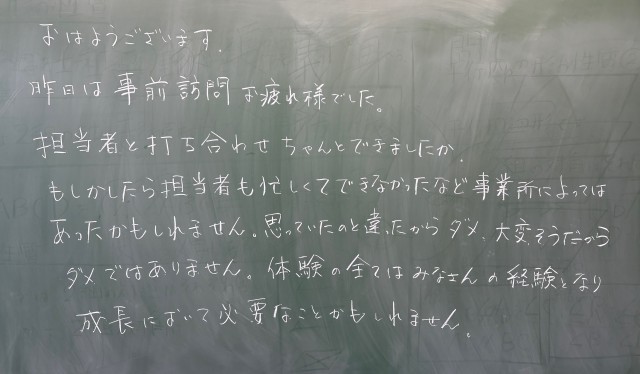 おはようございます.
昨日は事前訪問お疲れ様でした。
担当者と打ち合わせちゃんとできましたか.
もしかしたら担当者も忙しくてできなかったなど事業所によっては
あったかもしれません。思っていたのと違ったからダメ、大変そうだから
ダメではありません。体験の全てはみなさんの経験となり
成長において必要なことかもしれません。